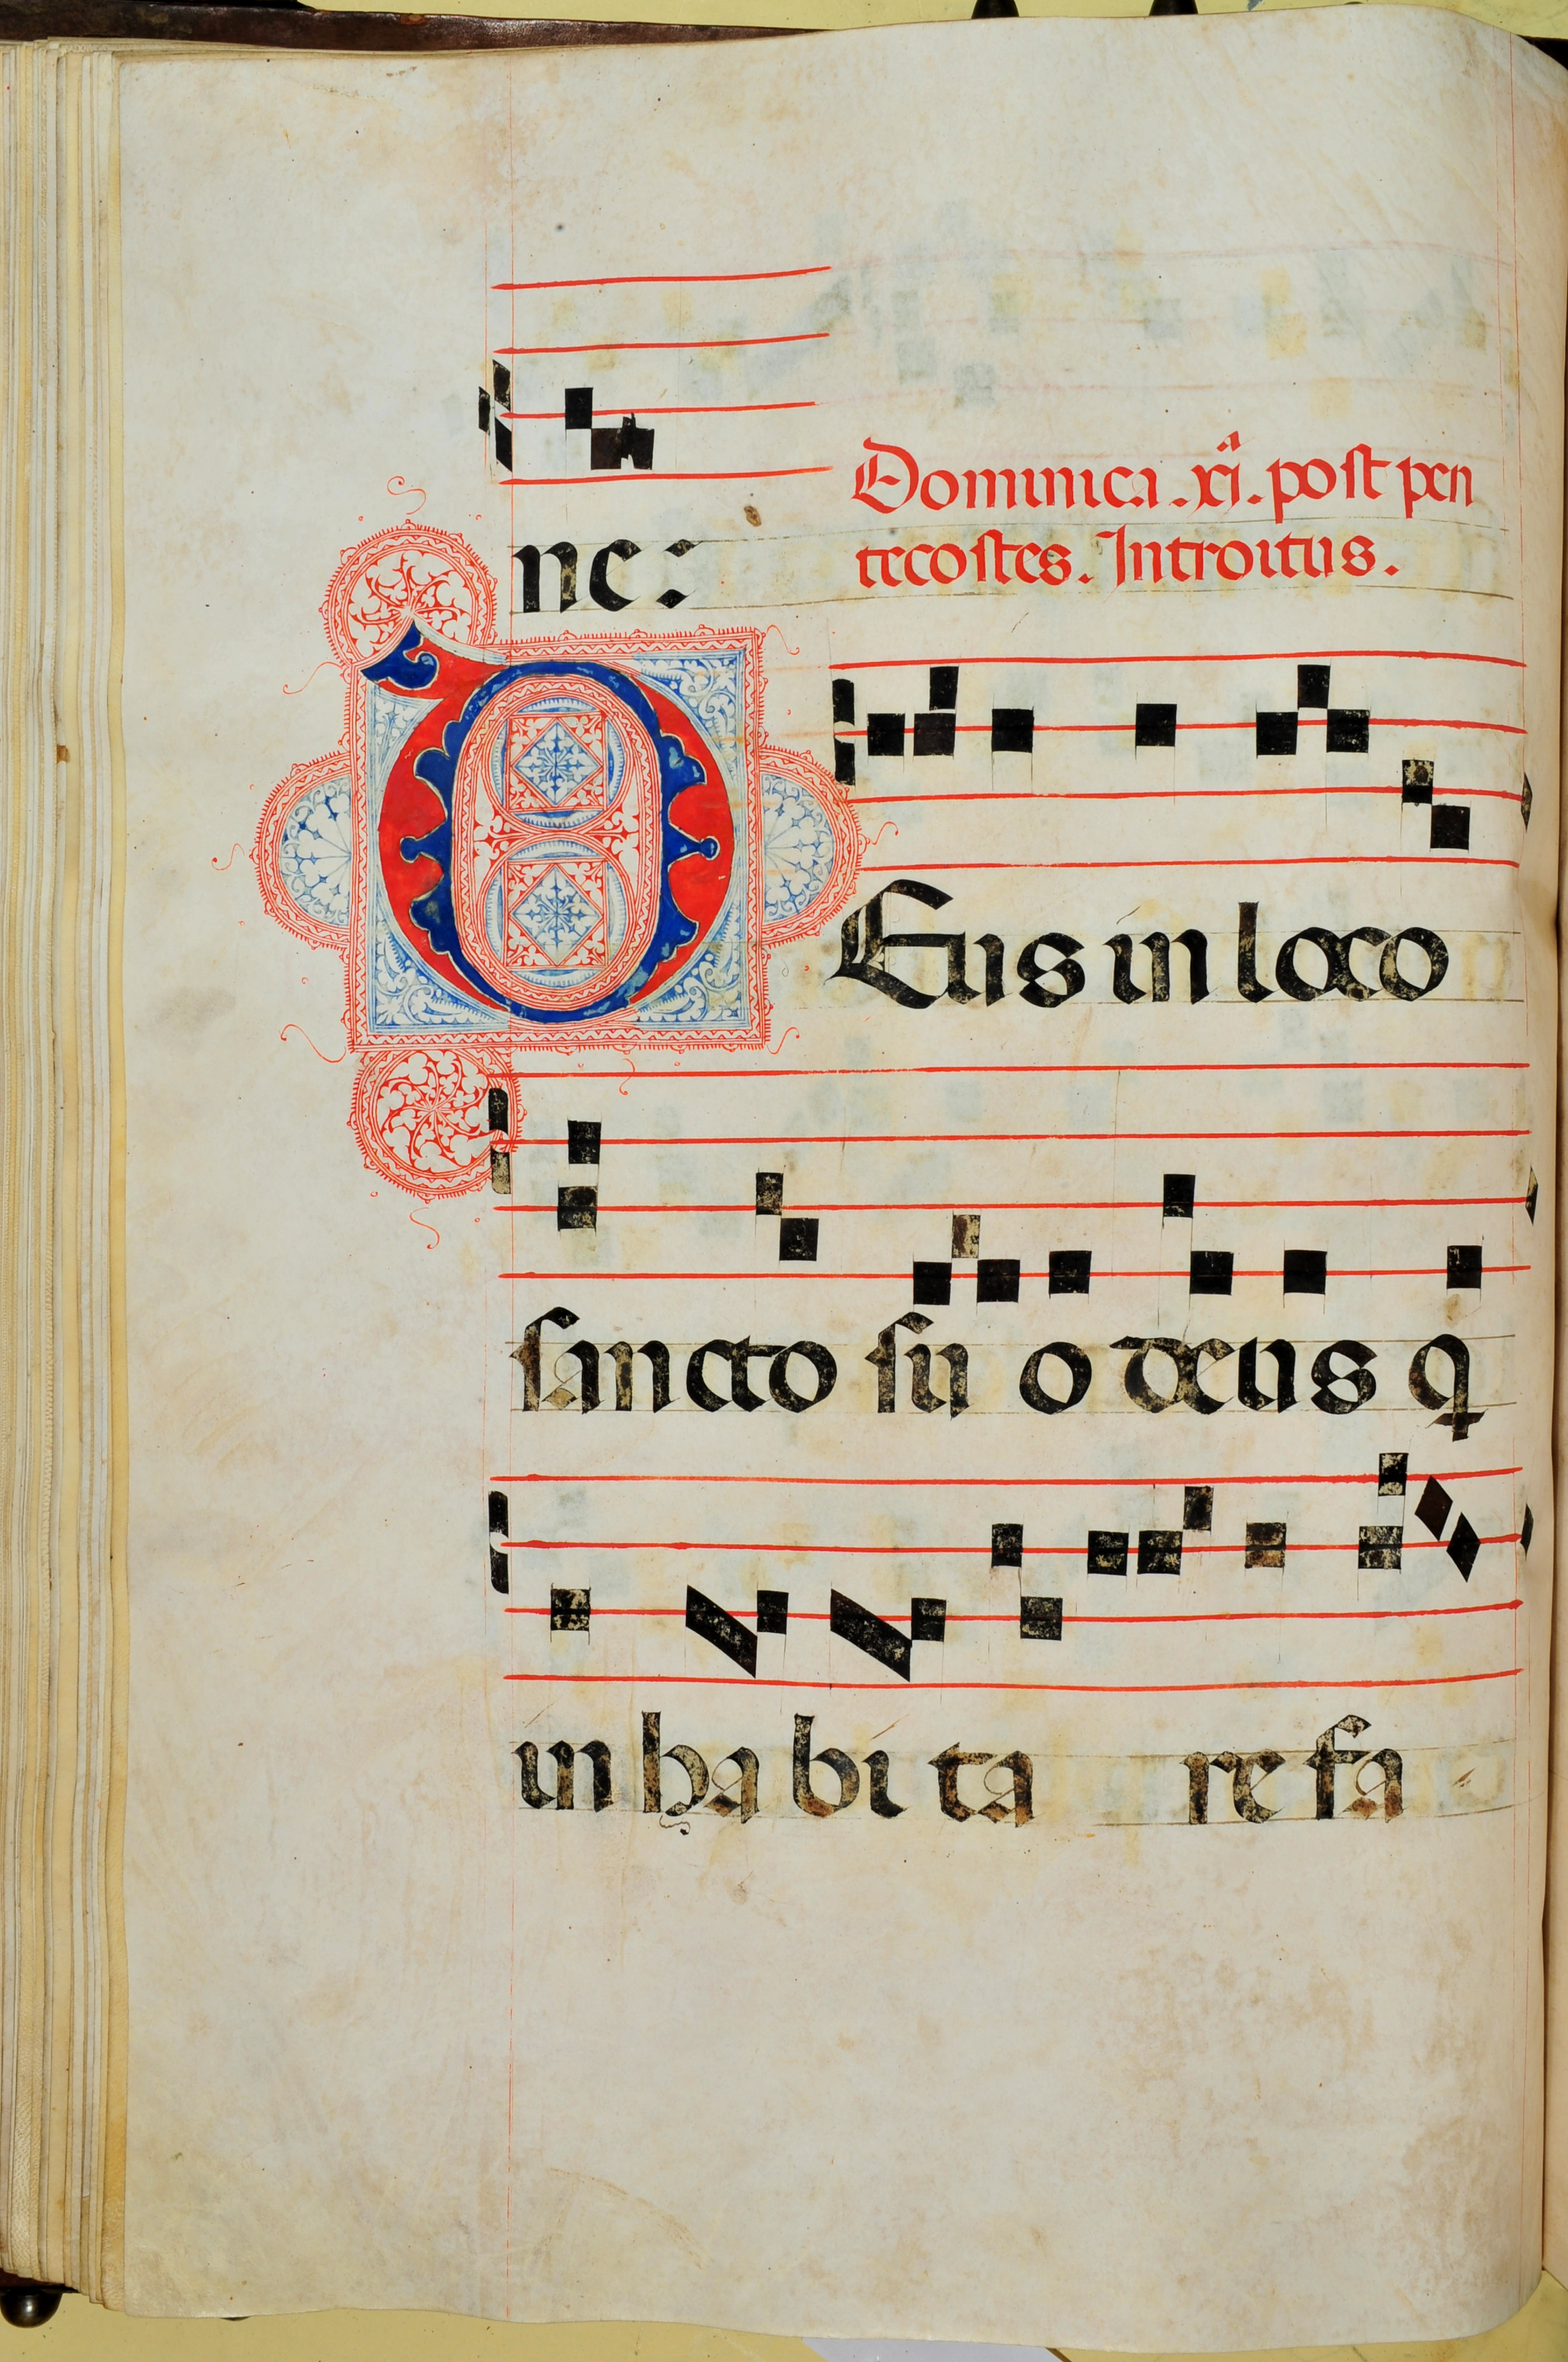 ne:
Dominica .xi. post pen
tecostes. Introitus.
DEus in loco
sancto su o deus q
in ha bi ta re fa